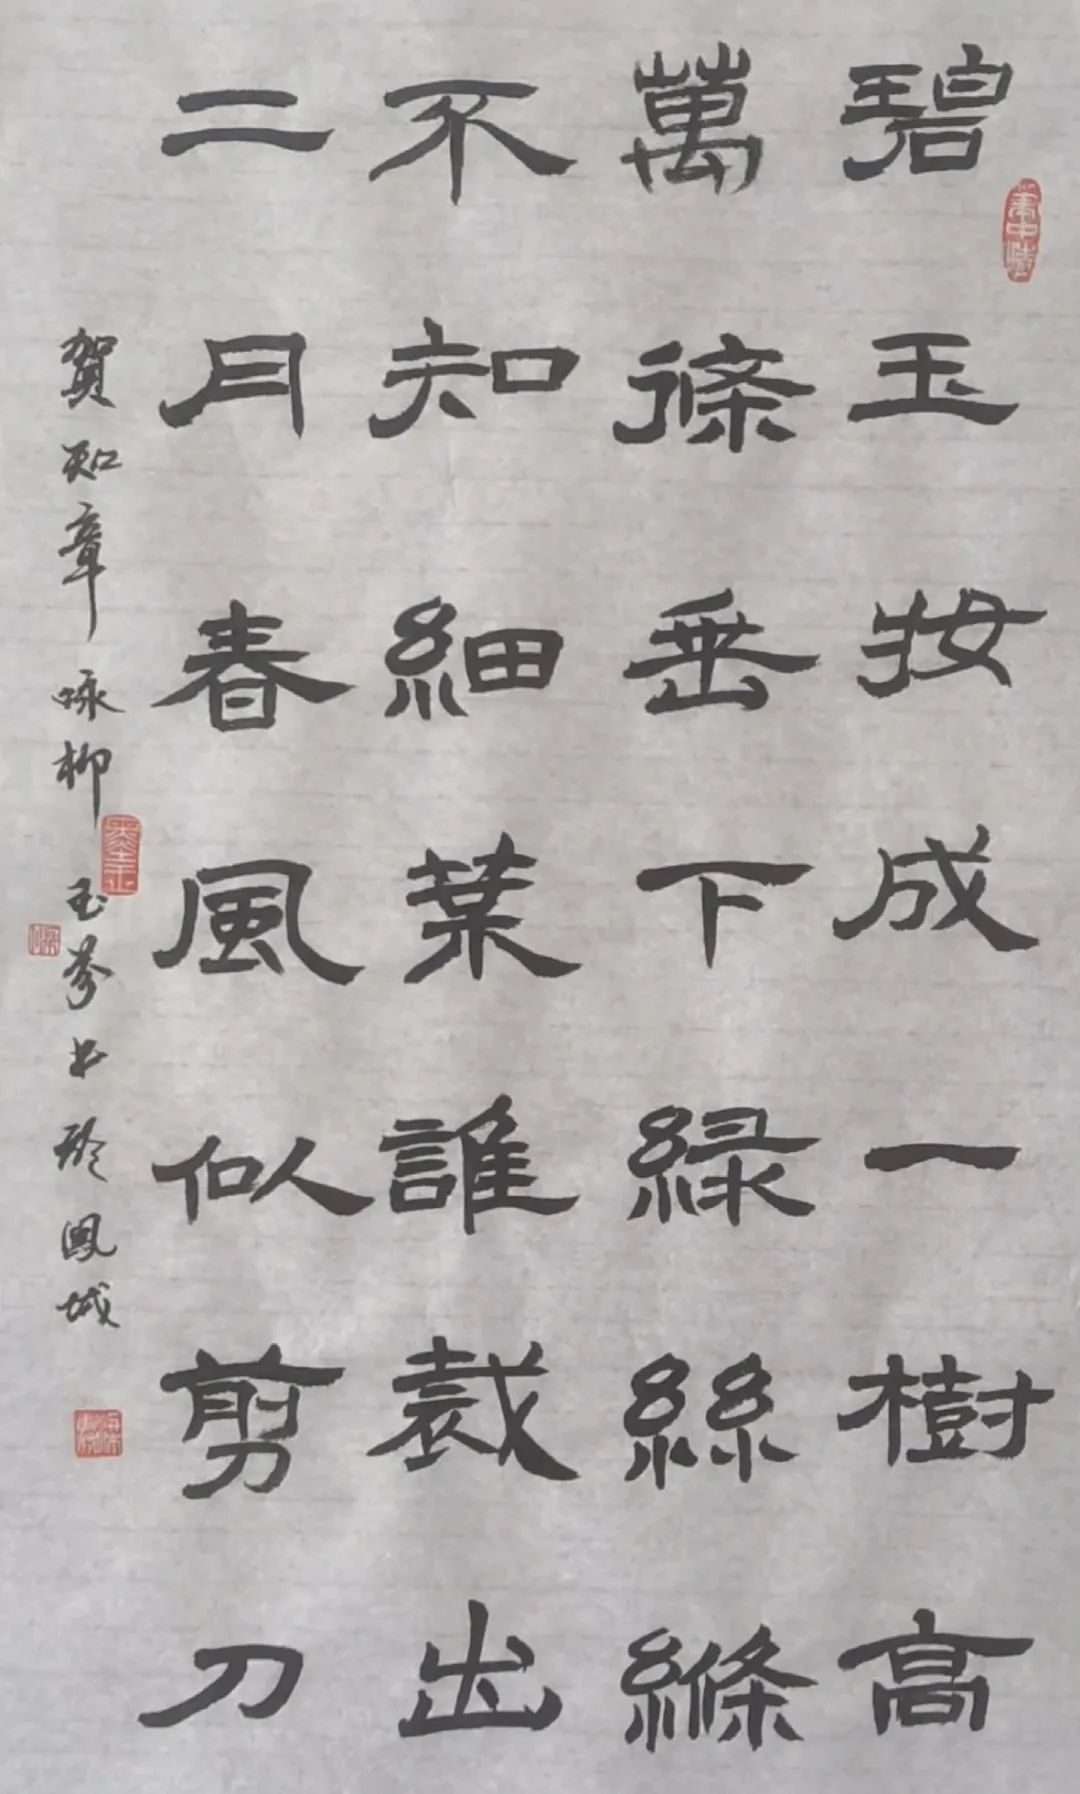 碧玉妝成一樹高
萬條垂下綠絲絛
不知細葉誰裁出
二月春風似剪刀
賀知章咏柳 玉芬书於鳳城